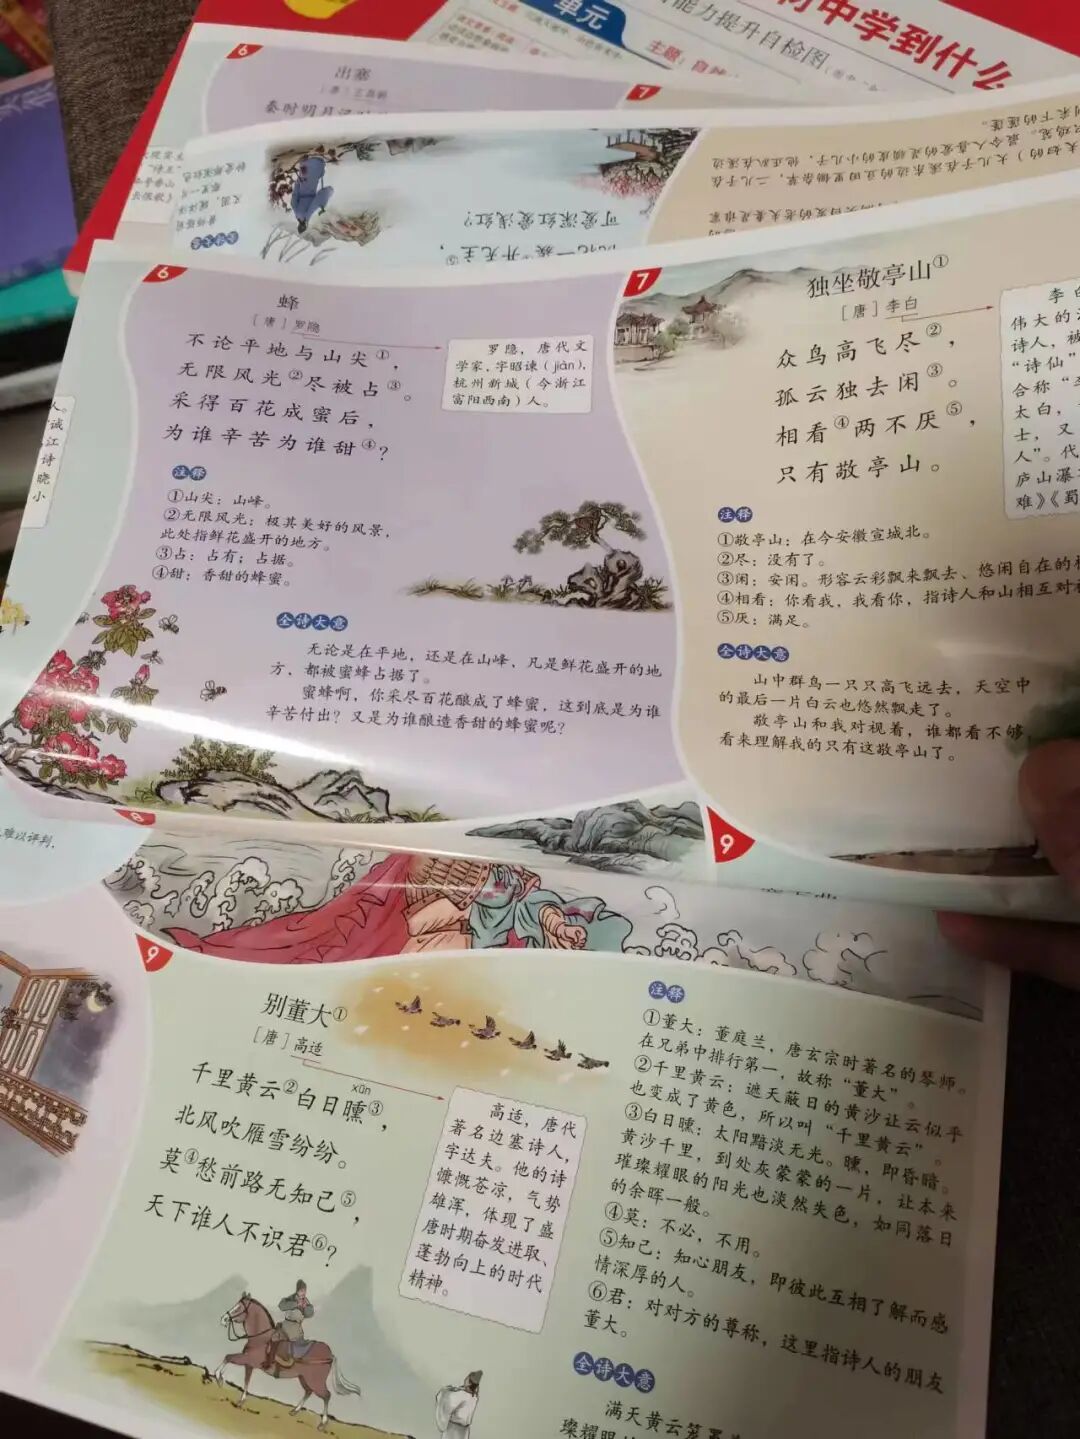 材中学到什么
能力提升自检图
单元
主题：自然
6
出塞
7
可爱深红爱浅红？
6
蜂
［唐］罗隐
不论平地与山尖①，
无限风光②尽被占③。
采得百花成蜜后，
为谁辛苦为谁甜④？
罗隐，唐代文
学家，字昭谏（jiàn），
杭州新城（今浙江
富阳西南）人。
注释
①山尖：山峰。
②无限风光：极其美好的风景，
此处指鲜花盛开的地方。
③占：占有；占据。
④甜：香甜的蜂蜜。
全诗大意
无论是在平地，还是在山峰，凡是鲜花盛开的地
方，都被蜜蜂占据了。
蜜蜂啊，你采尽百花酿成了蜂蜜，这到底是为谁
辛苦付出？又是为谁酿造香甜的蜂蜜呢？
人。
诚
江
诗
晓
小
7
独坐敬亭山①
［唐］李白
众鸟高飞尽②，
孤云独去闲③。
相看④两不厌⑤，
只有敬亭山。
李白
伟大的
诗人，被
“诗仙”
合称“
太白，
士，又
人”。代
庐山瀑
难》《蜀
注释
①敬亭山：在今安徽宣城北。
②尽：没有了。
③闲：安闲。形容云彩飘来飘去、悠闲自在的
④相看：你看我，我看你，指诗人和山相互对
⑤厌：满足。
全诗大意
山中群鸟一只只高飞远去，天空中
的最后一片白云也悠然飘走了。
敬亭山和我对视着，谁都看不够，
看来理解我的只有这敬亭山了。
8
难以评判，
9
9
别董大①
［唐］高适
千里黄云②白日曛③，
xūn
北风吹雁雪纷纷。
莫④愁前路无知己⑤，
天下谁人不识君⑥？
高适，唐代
著名边塞诗人，
字达夫。他的诗
慷慨苍凉，气势
雄浑，体现了盛
唐时期奋发进取、
蓬勃向上的时代
精神。
注释
①董大：董庭兰，唐玄宗时著名的琴师。
在兄弟中排行第一，故称“董大”。
②千里黄云：遮天蔽日的黄沙让云似乎
也变成了黄色，所以叫“千里黄云”。
③白日曛：太阳黯淡无光。曛，即昏暗。
黄沙千里，到处灰蒙蒙的一片，让本来
璀璨耀眼的阳光也淡然失色，如同落日
的余晖一般。
④莫：不必，不用。
⑤知己：知心朋友，即彼此互相了解而感
情深厚的人。
⑥君：对对方的尊称，这里指诗人的朋友
董大。
全诗大意
满天黄云笼罩
璨耀眼的